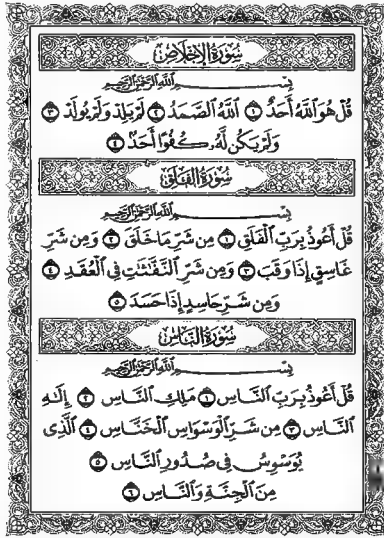 سُورَةُ الإِخْلَاصِ
بِسْمِ اللَّهِ الرَّحْمَٰنِ الرَّحِيمِ
قُلْ هُوَ اللَّهُ أَحَدٌ ١ اللَّهُ الصَّمَدُ ٢ لَمْ يَلِدْ وَلَمْ يُولَدْ ٣
وَلَمْ يَكُن لَّهُ كُفُوًا أَحَدٌ ٤
سُورَةُ الْفَلَقِ
بِسْمِ اللَّهِ الرَّحْمَٰنِ الرَّحِيمِ
قُلْ أَعُوذُ بِرَبِّ الْفَلَقِ ١ مِن شَرِّ مَا خَلَقَ ٢ وَمِن شَرِّ
غَاسِقٍ إِذَا وَقَبَ ٣ وَمِن شَرِّ النَّفَّٰثَٰتِ فِي الْعُقَدِ ٤
وَمِن شَرِّ حَاسِدٍ إِذَا حَسَدَ ٥
سُورَةُ النَّاسِ
بِسْمِ اللَّهِ الرَّحْمَٰنِ الرَّحِيمِ
قُلْ أَعُوذُ بِرَبِّ النَّاسِ ١ مَلِكِ النَّاسِ ٢ إِلَٰهِ
النَّاسِ ٣ مِن شَرِّ الْوَسْوَاسِ الْخَنَّاسِ ٤ الَّذِي
يُوَسْوِسُ فِي صُدُورِ النَّاسِ ٥
مِنَ الْجِنَّةِ وَالنَّاسِ ٦